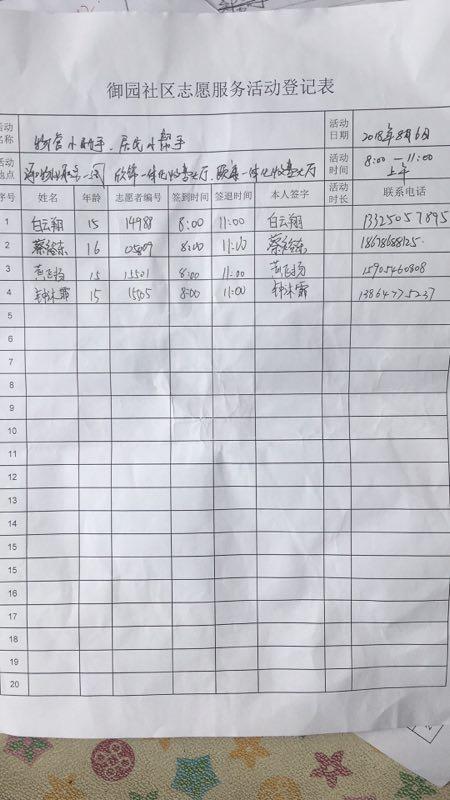 御园社区志愿服务活动登记表
活动名称 物管小助手、居民小帮手 活动日期 2018年8月6日
活动地点 一体化收费大厅 一体化收费大厅 活动时间 8:00—11:00 上午
序号 姓名 年龄 志愿者编号 签到时间 签退时间 本人签字 活动时长 联系电话
1 白云翔 15 14988 8:00 11:00 白云翔 13325057895
2 蔡裕东 16 8:00 11:00 蔡裕东 18678688125
3 15 15501 8:00 11:00 15905460808
4 15 15505 8:00 11:00 13864775237
5
6
7
8
9
10
11
12
13
14
15
15
17
18
19
20